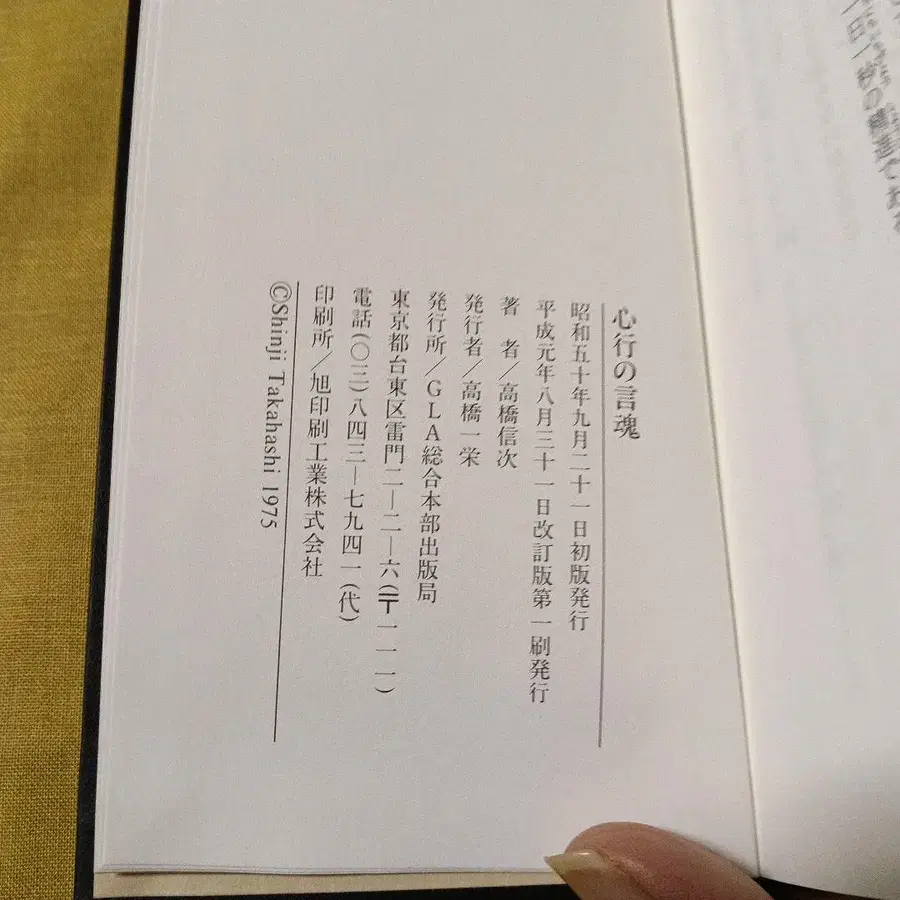 心行の言魂
昭和五十年九月二十一日初版発行
平成元年八月三十一日改訂版第一刷発行
著　者/高橋信次
発行者/高橋一栄
発行所/GLA総合本部出版局
東京都台東区雷門二―二―六(〒一一一)
電話(〇三)八四三―七九四一(代)
印刷所/旭印刷工業株式会社
©Shinji Takahashi 1975